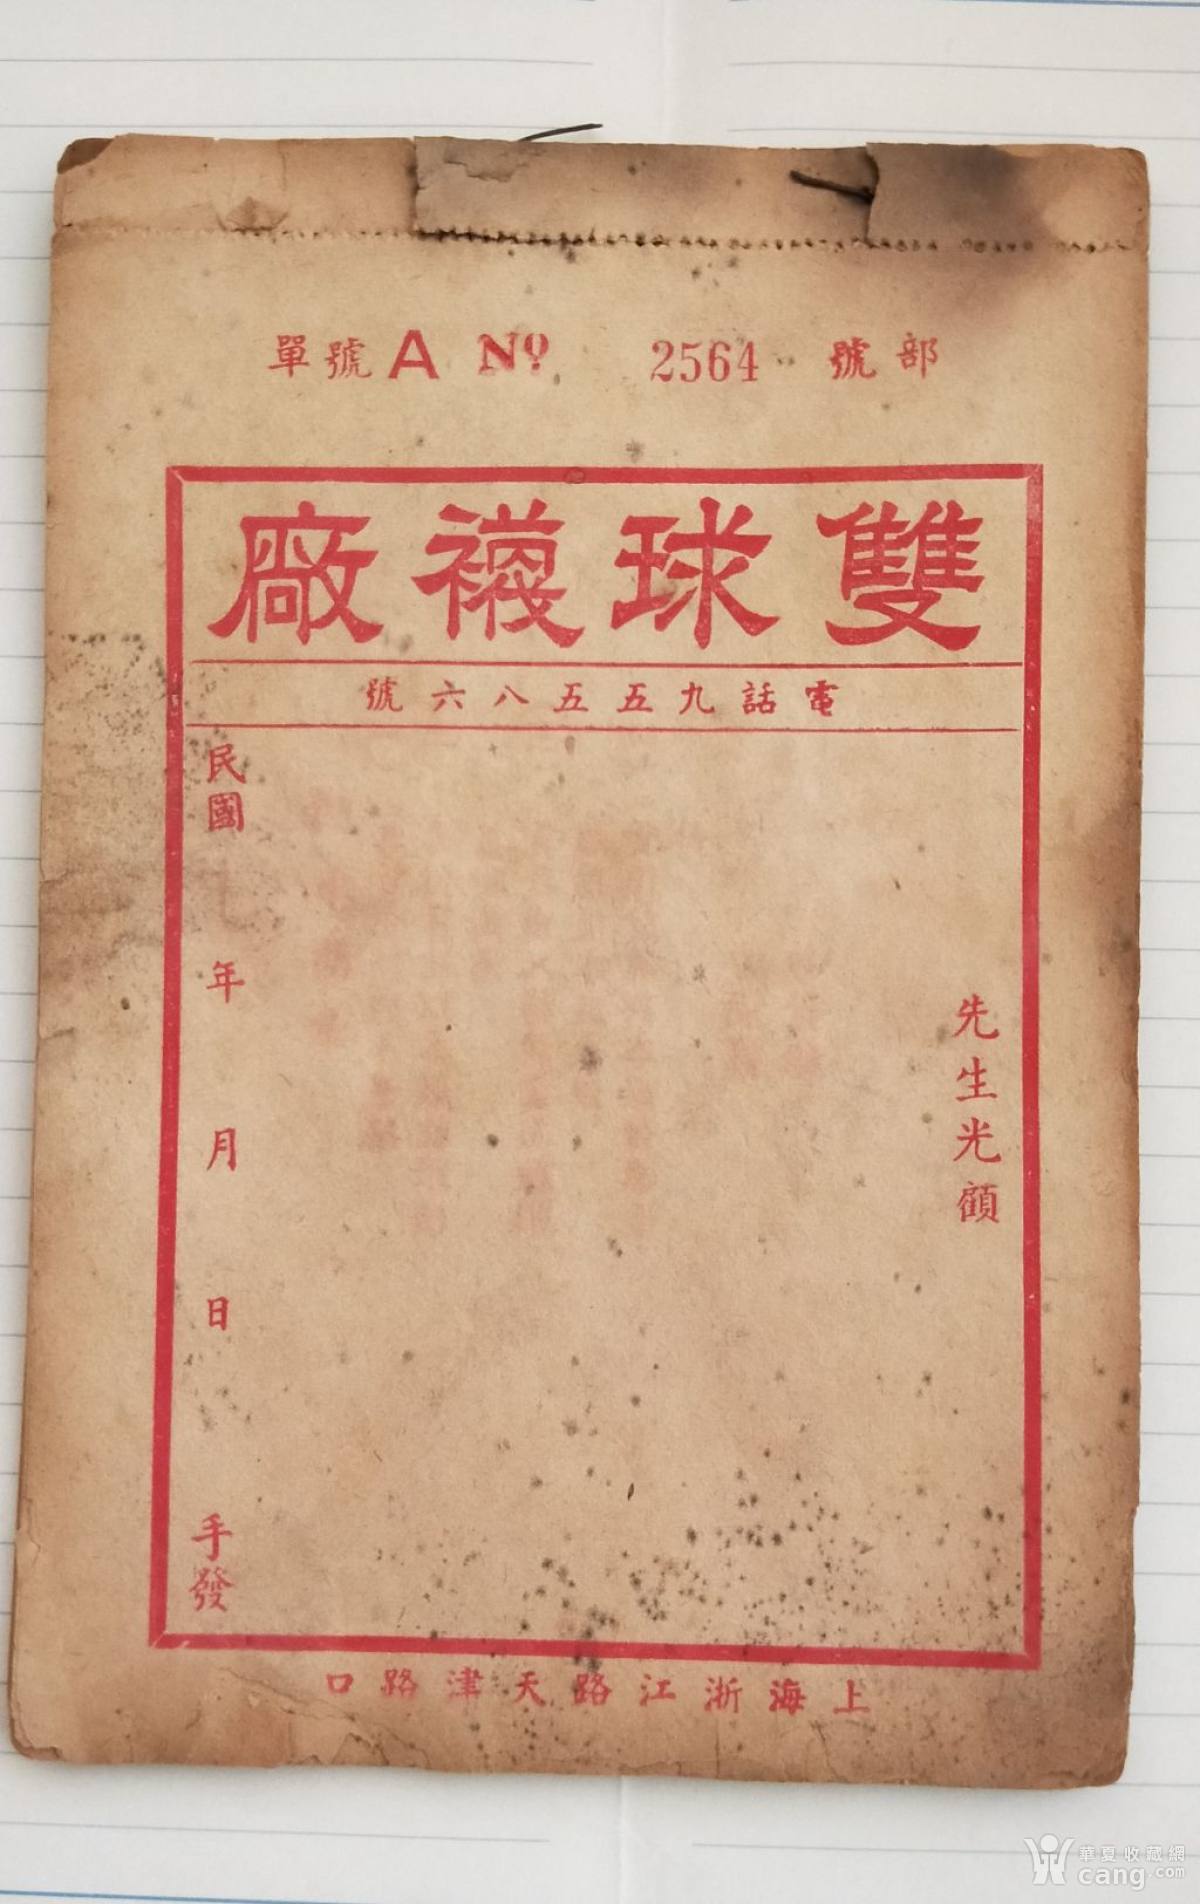 部號 2564 Nº A 單號
雙球襪廠
電話九五五八六號
先生光顧
民國 年 月 日
手發
上海浙江路天津路口
華夏收藏網
cang.com